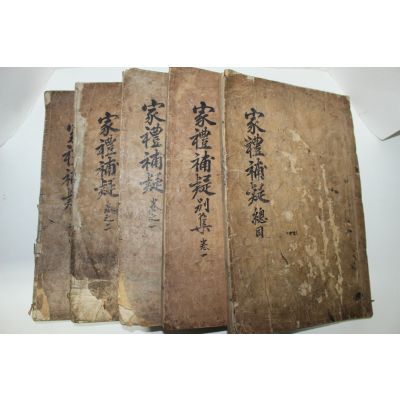 家禮補疑 總目
家禮補疑 別集 卷一
家禮補疑 卷之一
家禮補疑 卷之二
家禮補疑